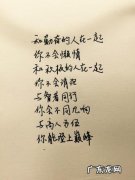 和勤奋的人在一起
你不会懒惰
和积极的人在一起
你不会消沉
与智者同行
你会不同凡响
与高人为伍
你能登上巅峰
广东龙网